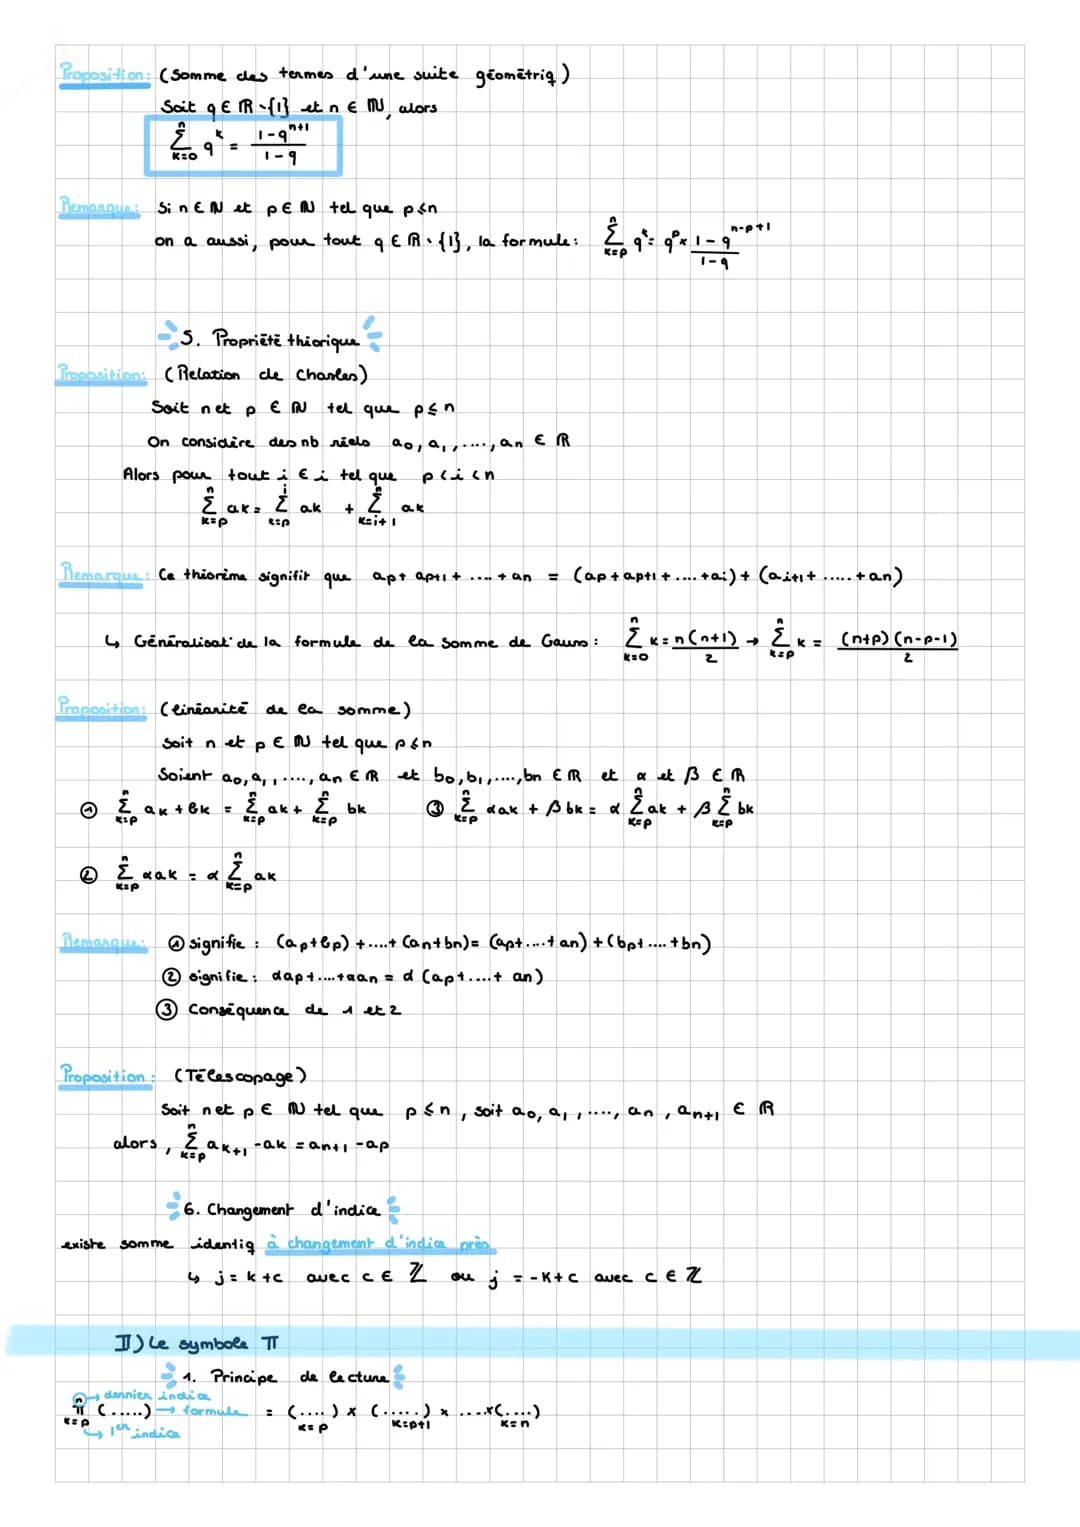 Proposition: (Somme des termes d'une suite géométriq)
Soit q ∈ ℝ∖{1} et n ∈ ℕ, alors
∑_{k=0}^{n} q^k = (1-q^{n+1})/(1-q)
Remarque: Si n ∈ ℕ et p ∈ ℕ tel que p≤n
on a aussi, pour tout q ∈ ℝ∖{1}, la formule: ∑_{k=p}^{n} q^k = q^p × (1-q^{n-p+1})/(1-q)
5. Propriété théorique
Proposition: (Relation de Chasles)
Soit n et p ∈ ℕ tel que p≤n
On considère des nb réels a0, a1,....,an ∈ ℝ
Alors pour tout i ∈ i tel que p<i<n
∑_{k=p}^{n} ak = ∑_{k=p}^{i} ak + ∑_{k=i+1}^{n} ak
Remarque: Ce théorème signifit que ap+ ap+1 + .... + an = (ap+ap+1+....+ai)+(ai+1+.....+an)
↳ Généralisat° de la formule de la somme de Gauss: ∑_{k=0}^{n} k = n(n+1)/2 → ∑_{k=p}^{n} k = (n+p)(n-p-1)/2
Proposition: (linéarité de la somme)
Soit n et p ∈ ℕ tel que p≤n
Soient a0,a1,....,an ∈ ℝ et b0,b1,....,bn ∈ ℝ et α et β ∈ ℝ
① ∑_{k=p}^{n} ak + bk = ∑_{k=p}^{n} ak + ∑_{k=p}^{n} bk ③ ∑_{k=p}^{n} αak + βbk = α ∑_{k=p}^{n} ak + β ∑_{k=p}^{n} bk
② ∑_{k=p}^{n} αak = α ∑_{k=p}^{n} ak
Remarque: ① signifie : (ap+bp) +....+ (an+bn)= (ap+....+an)+(bp+....+bn)
② signifie: αap+....+αan = α (ap+....+ an)
③ Conséquence de 1 et 2
Proposition: (Télescopage)
Soit n et p ∈ ℕ tel que p≤n, soit a0, a1,...., an, an+1 ∈ ℝ
alors, ∑_{k=p}^{n} ak+1 -ak = an+1 -ap
6. Changement d'indice
existe somme identiq à changement d'indice près
↳ j= k+c avec c ∈ ℤ ou j = -k+c avec c ∈ ℤ
II) Le symbole Π
1. Principe de lecture
→ dernier indice
∏_{k=p}^{n} (.....) → formule = (....)_{k=p} × (.....)_{k=p+1} × ....×(....)_{k=n}
↳ 1er indice